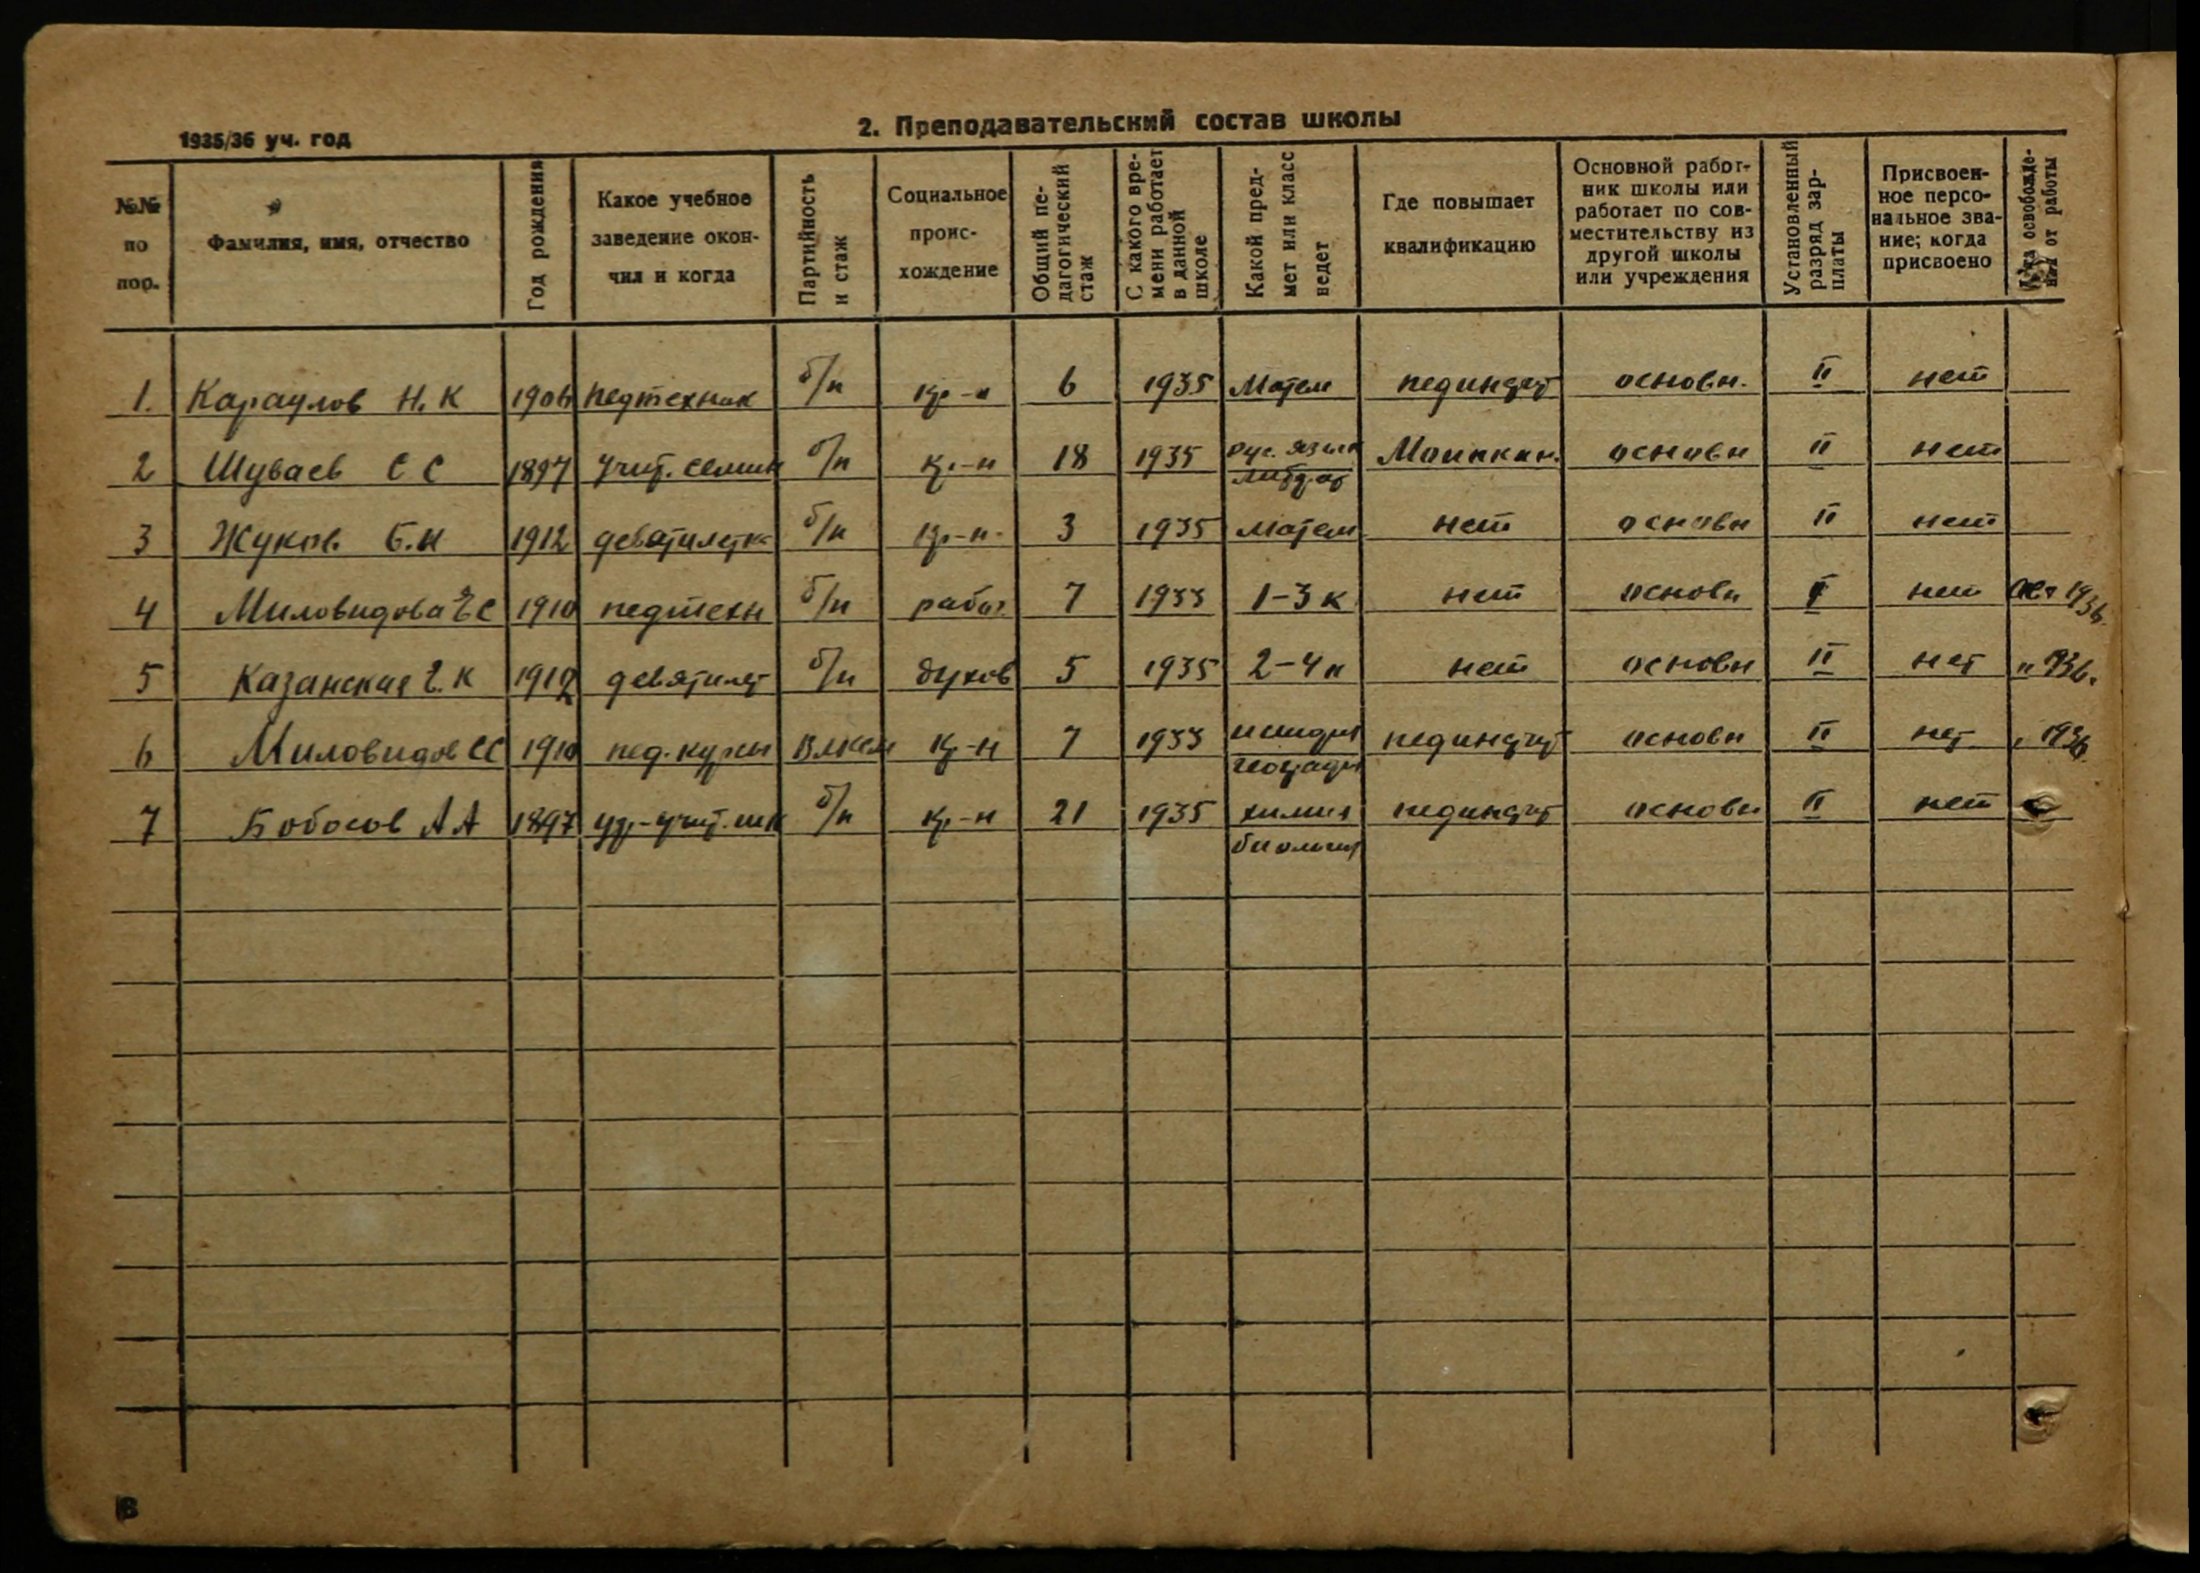 1935/36 уч. год
2. Преподавательский состав школы
№№ по пор.
Фамилия, имя, отчество
Год рождения
Какое учебное заведение окон-
чил и когда
Партийность и стаж
Социальное проис-
хождение
Общий пе-
дагогический стаж
С какого вре-
мени работает в данной школе
Какой пред-
мет или класс ведет
Где повышает квалификацию
Основной работ-
ник школы или работает по сов-
местительству из другой школы или учреждения
Установленный разряд зар-
платы
Присвоен-
ное персо-
нальное зва-
ние; когда присвоено
Дата освобожде-
ния от работы
1. Караулов Н. К 1906 педтехник б/п кр-н 6 1935 Матем пединстит основн. II нет
2 Шуваев С С 1897 учит. семин б/п кр-н 18 1935 рус. язык основн II нет
3 Жуков Б.И 1912 девятилетка б/п кр-н 3 1935 Матем нет основн II нет
4 Миловидова Е С 1910 педтехн б/п рабоч. 7 1933 1-3 к нет основн нет 1936.
5 Казанская Е. К 1912 девятилет б/п духов 5 1935 2-4 к нет основн II нет " 1936.
6 Миловидов С С 1910 пед. курсы ВЛКСМ кр-н 7 1933 история
география пединстит основн II нет " 1936
7 Бобосов А А 1897 б/п кр-н 21 1935 химия
биология пединстит основн II нет